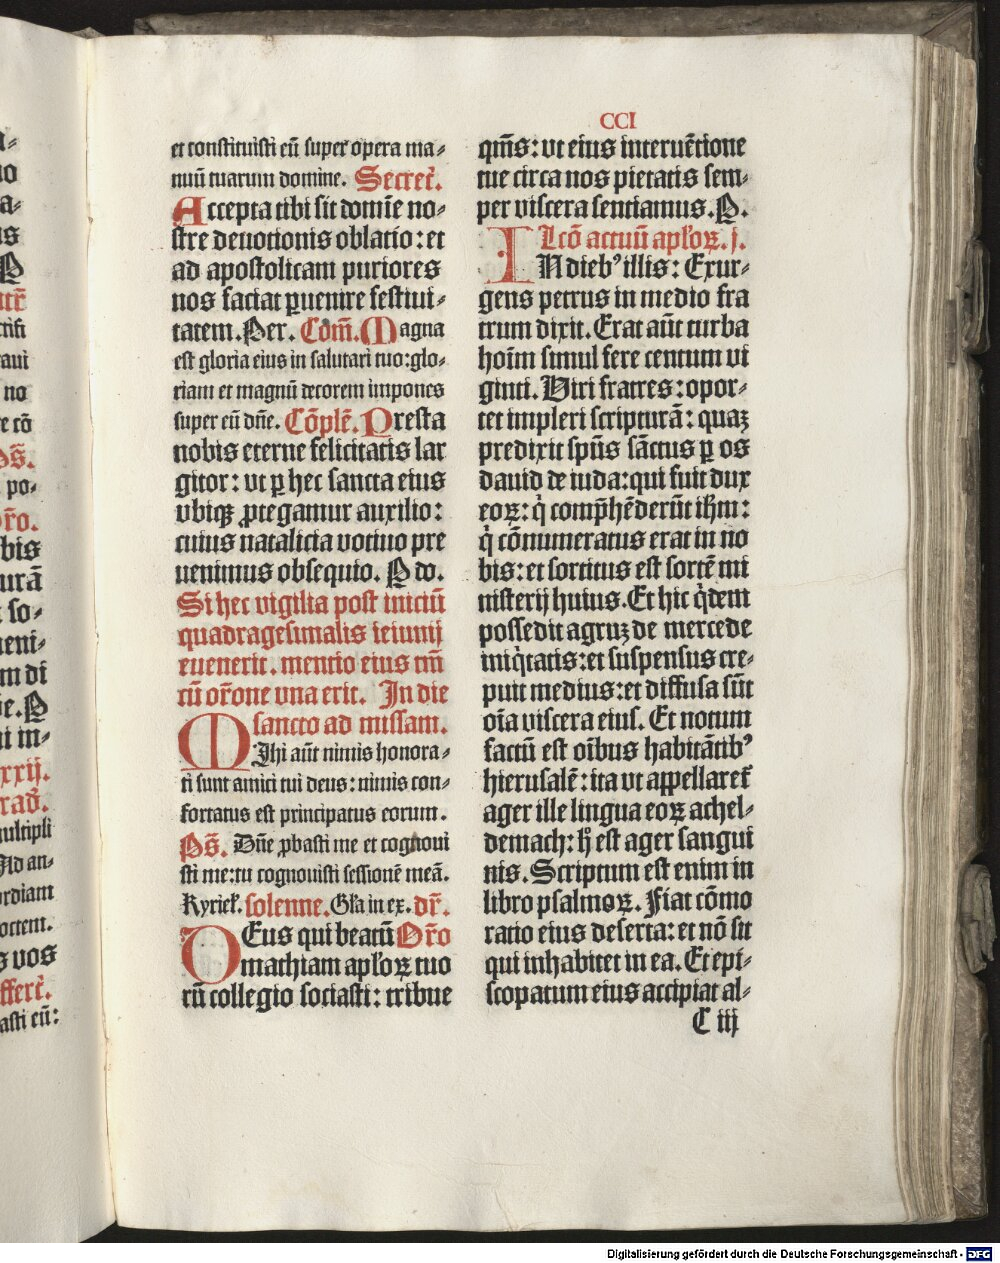 CCI
et constituisti eū super opera ma⸗
nuū tuarum domine. Secret̄.
Accepta tibi sit domīe no⸗
stre deuotionis oblatio: et
ad apostolicam puriores
nos faciat ꝑuenire festiui⸗
tatem. Per. Com̄. Magna
est gloria eius in salutari tuo: glo⸗
riam et magnū decorem impones
super eū dn̄e. Cōplē. Presta
nobis eterne felicitatis lar
gitor: vt ꝑ hec sancta eius
vbiqꝫ ꝓtegamur auxilio:
cuius natalicia votiuo pre
uenimus obsequio. P do.
Si hec vigilia post iniciū
quadragesimalis ieiunij
euenerit. mentio eius tm̄
cū or̄one vna erit. In die
sancto ad missam.
MIhi aūt nimis honora⸗
ti sunt amici tui deus: nimis con⸗
fortatus est principatus eorum.
Ps̄. Dn̄e ꝓbasti me et cognoui
sti me: tu cognouisti sessionē meā.
Kyriel̄. solenne. Gl̄a in ex. dr̄.
DEus qui beatū Or̄o
mathiam apl'oꝝ tuo
rū collegio sociasti: tribue
qm̄s: vt eius interuētione
tue circa nos pietatis sem⸗
per viscera sentiamus. P.
Lcō actuū apl'oꝝ. j.
IN dieb' illis: Exur⸗
gens petrus in medio fra
trum dixit. Erat aūt turba
hoīm simul fere centum vi
ginti. Viri fratres: opor⸗
tet impleri scripturā: quaꝫ
predixit spūs sāctus ꝑ os
dauid de iuda: qui fuit dux
eoꝝ: q̇ comp̄hēderūt ih̄m:
q̇ cōnumeratus erat in no
bis: et sortitus est sortē mi
nisterij huius. Et hic q̇dem
possedit agruꝫ de mercede
iniq̇tatis: et suspensus cre⸗
puit medius: et diffusa sūt
oīa viscera eius. Et notum
factū est oībus habitātib'
hierusalē: ita vt appellaret̄
ager ille lingua eoꝝ achel⸗
demach: h̄ est ager sangui
nis. Scriptum est enim in
libro psalmoꝝ. Fiat cōmo
ratio eius deserta: et nō sit
qui inhabitet in ea. Et epi⸗
scopatum eius accipiat al⸗
C iij
Digitalisierung gefördert durch die Deutsche Forschungsgemeinschaft - DFG